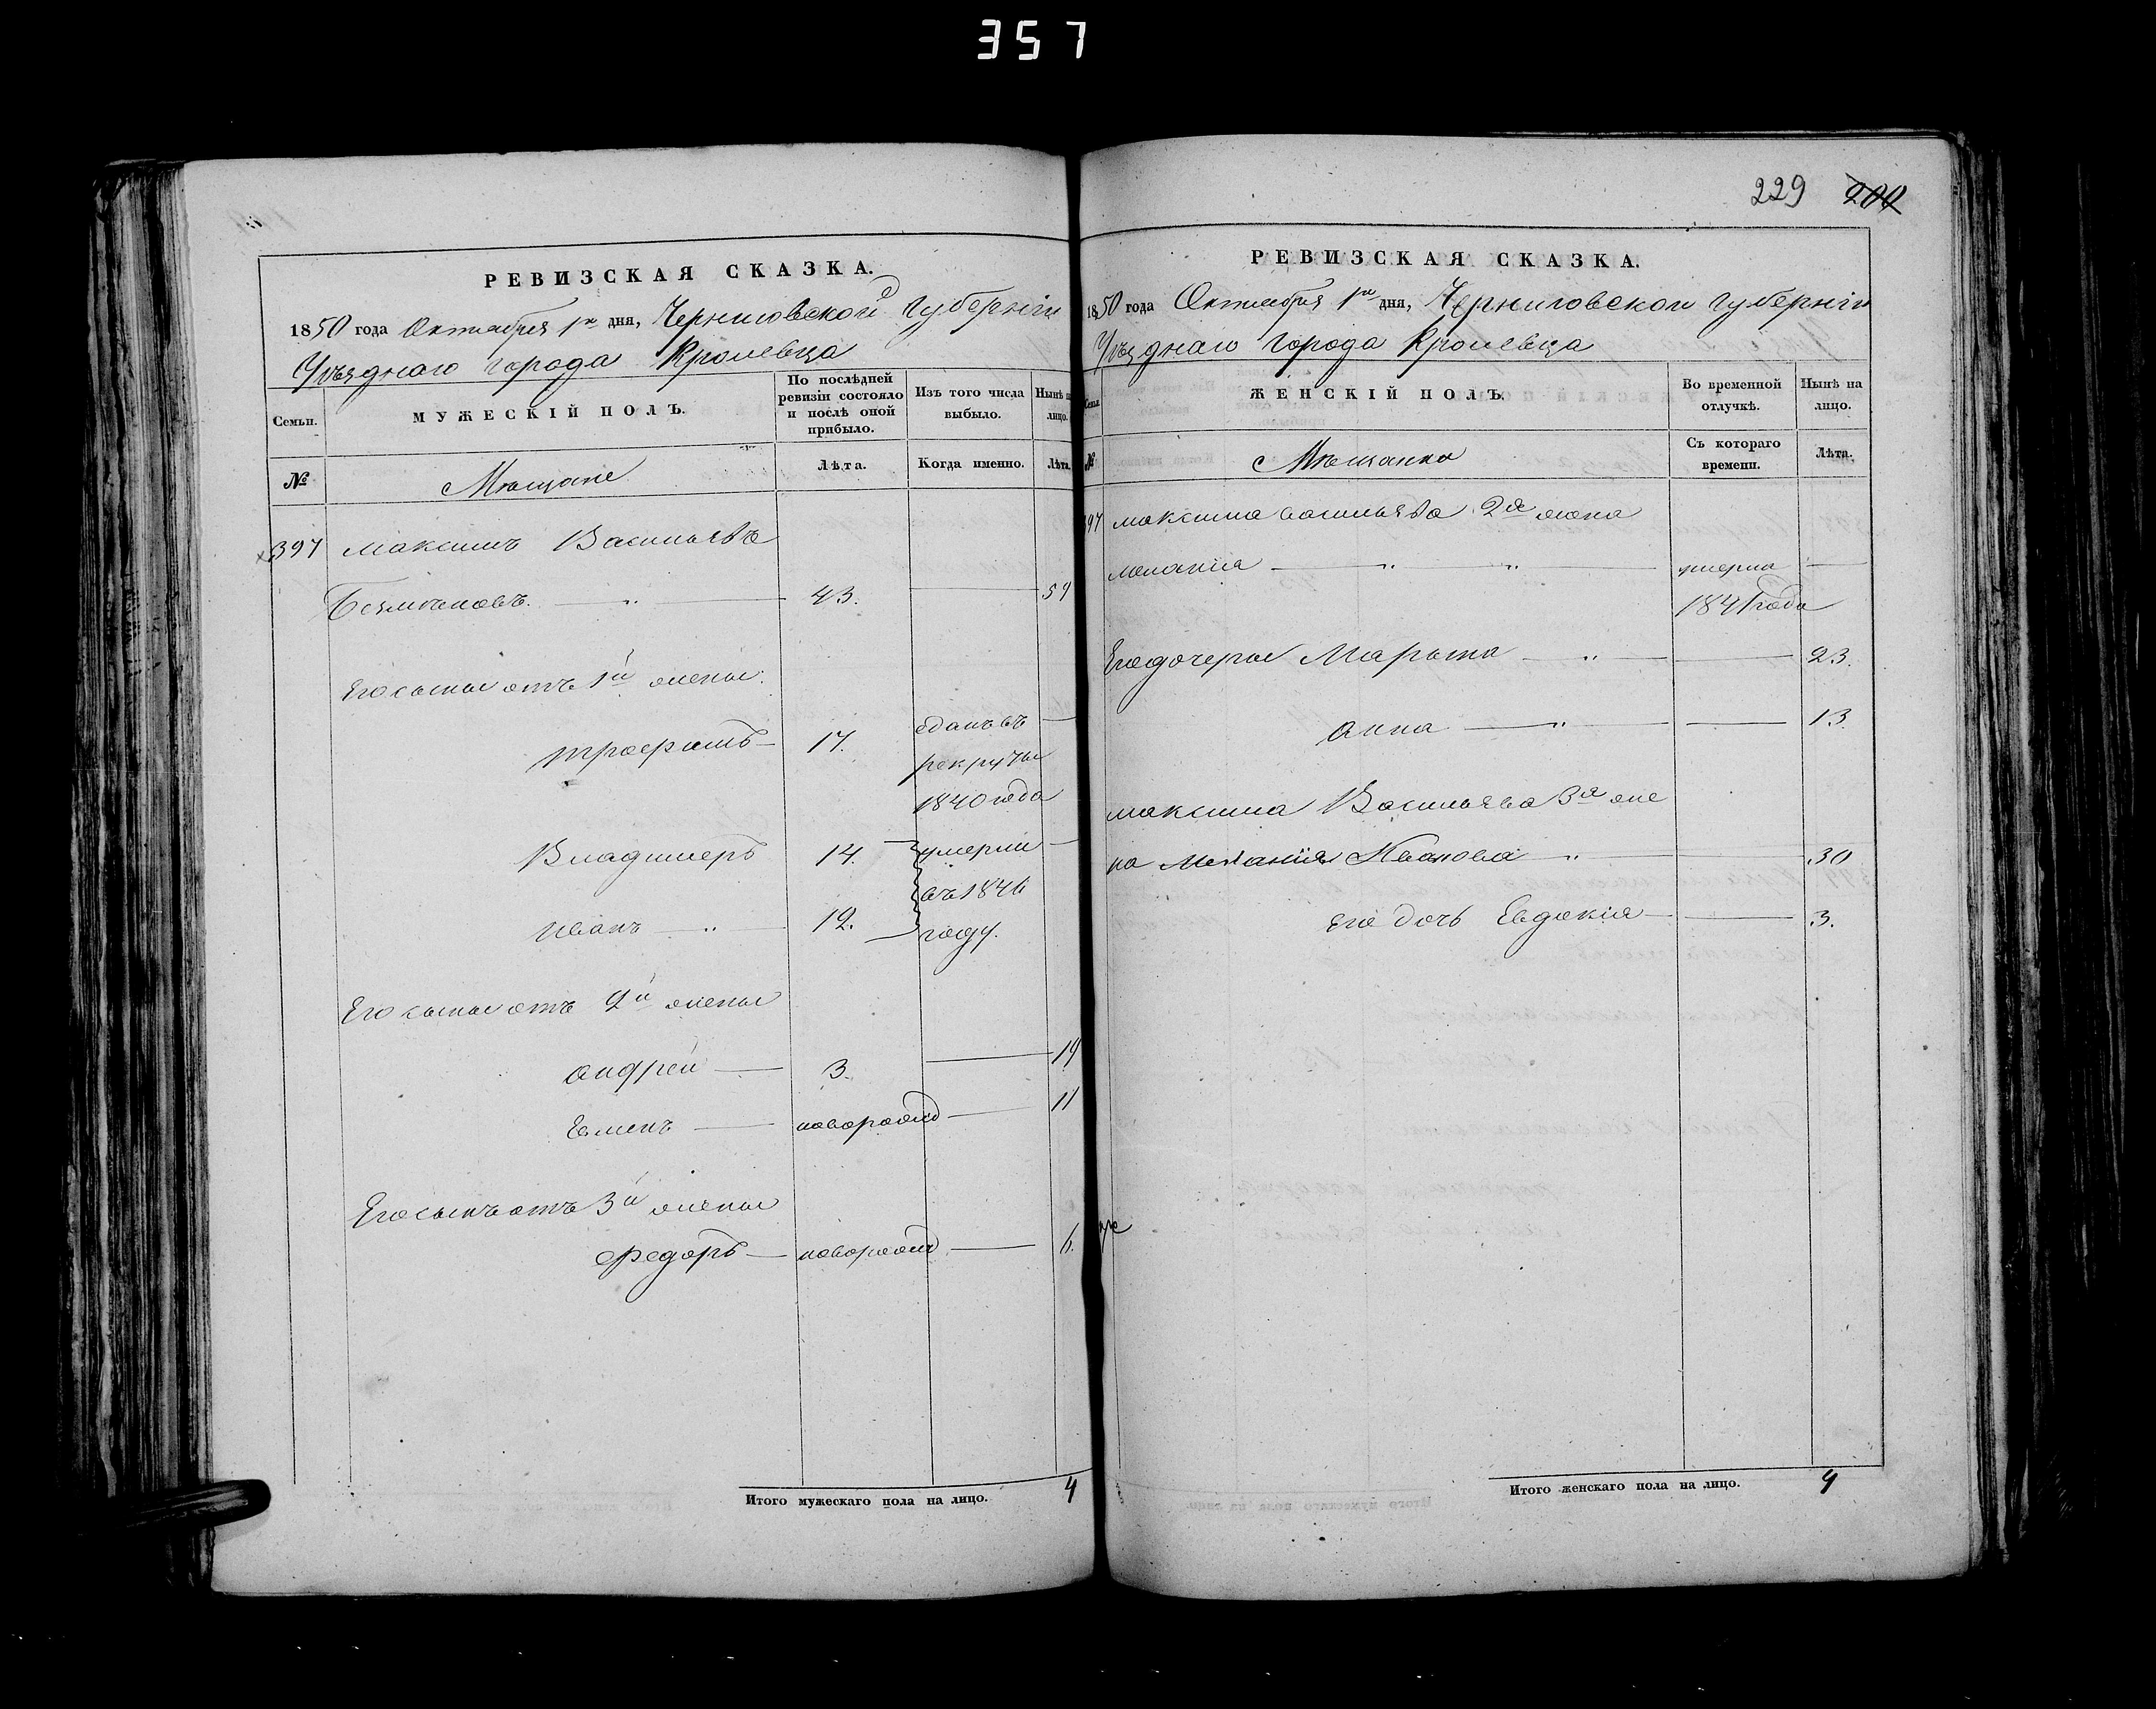 357
РЕВИЗСКАЯ СКАЗКА.
1850 года Октября 1го дня, Черниговской Губерніи
Уѣзднаго города Кролевца
Семьи.
МУЖЕСКІЙ ПОЛЪ.
По послѣдней ревизіи состояло и послѣ оной прибыло.
Изъ того числа выбыло.
Нынѣ на лицо.
№
Мѣщане
Лѣта.
Когда именно.
Лѣта.
397 Максимъ Васильевъ
43. 54
Его сыны отъ 1й жены.
Трофимъ 17. сданъ въ
рекруты
1840 года
Владимеръ 14. умерли
въ 1846
Иванъ 12. году.
Его сыны отъ 2й жены
Андрей 3. 14
Евменъ новорожд 11
Его сынъ отъ 3й жены
Федоръ новорожд 6.
Итого мужескаго пола на лицо. 4
229 200
РЕВИЗСКАЯ СКАЗКА.
1850 года Октября 1го дня, Черниговской Губерніи
Уѣзднаго города Кролевца
Семьи.
ЖЕНСКІЙ ПОЛЪ.
Во временной отлучкѣ.
Нынѣ на лицо.
№
Мѣщанки
Съ котораго времени.
Лѣта.
397 Максима Васильева 2я жена
Меланія умерла
1841 года
Его дочери Марья 23.
Анна 13.
Максима Васильева 3я же
на Меланія Иванова 30
Его дочь Евдокія 3.
Итого женскаго пола на лицо. 4